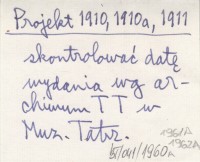 Projekt 1910, 1910a, 1911
skontrolować datę
wydania wg ar-
chiwum TT w
Muz. Tatrz.
1961a
1962a
/1960a